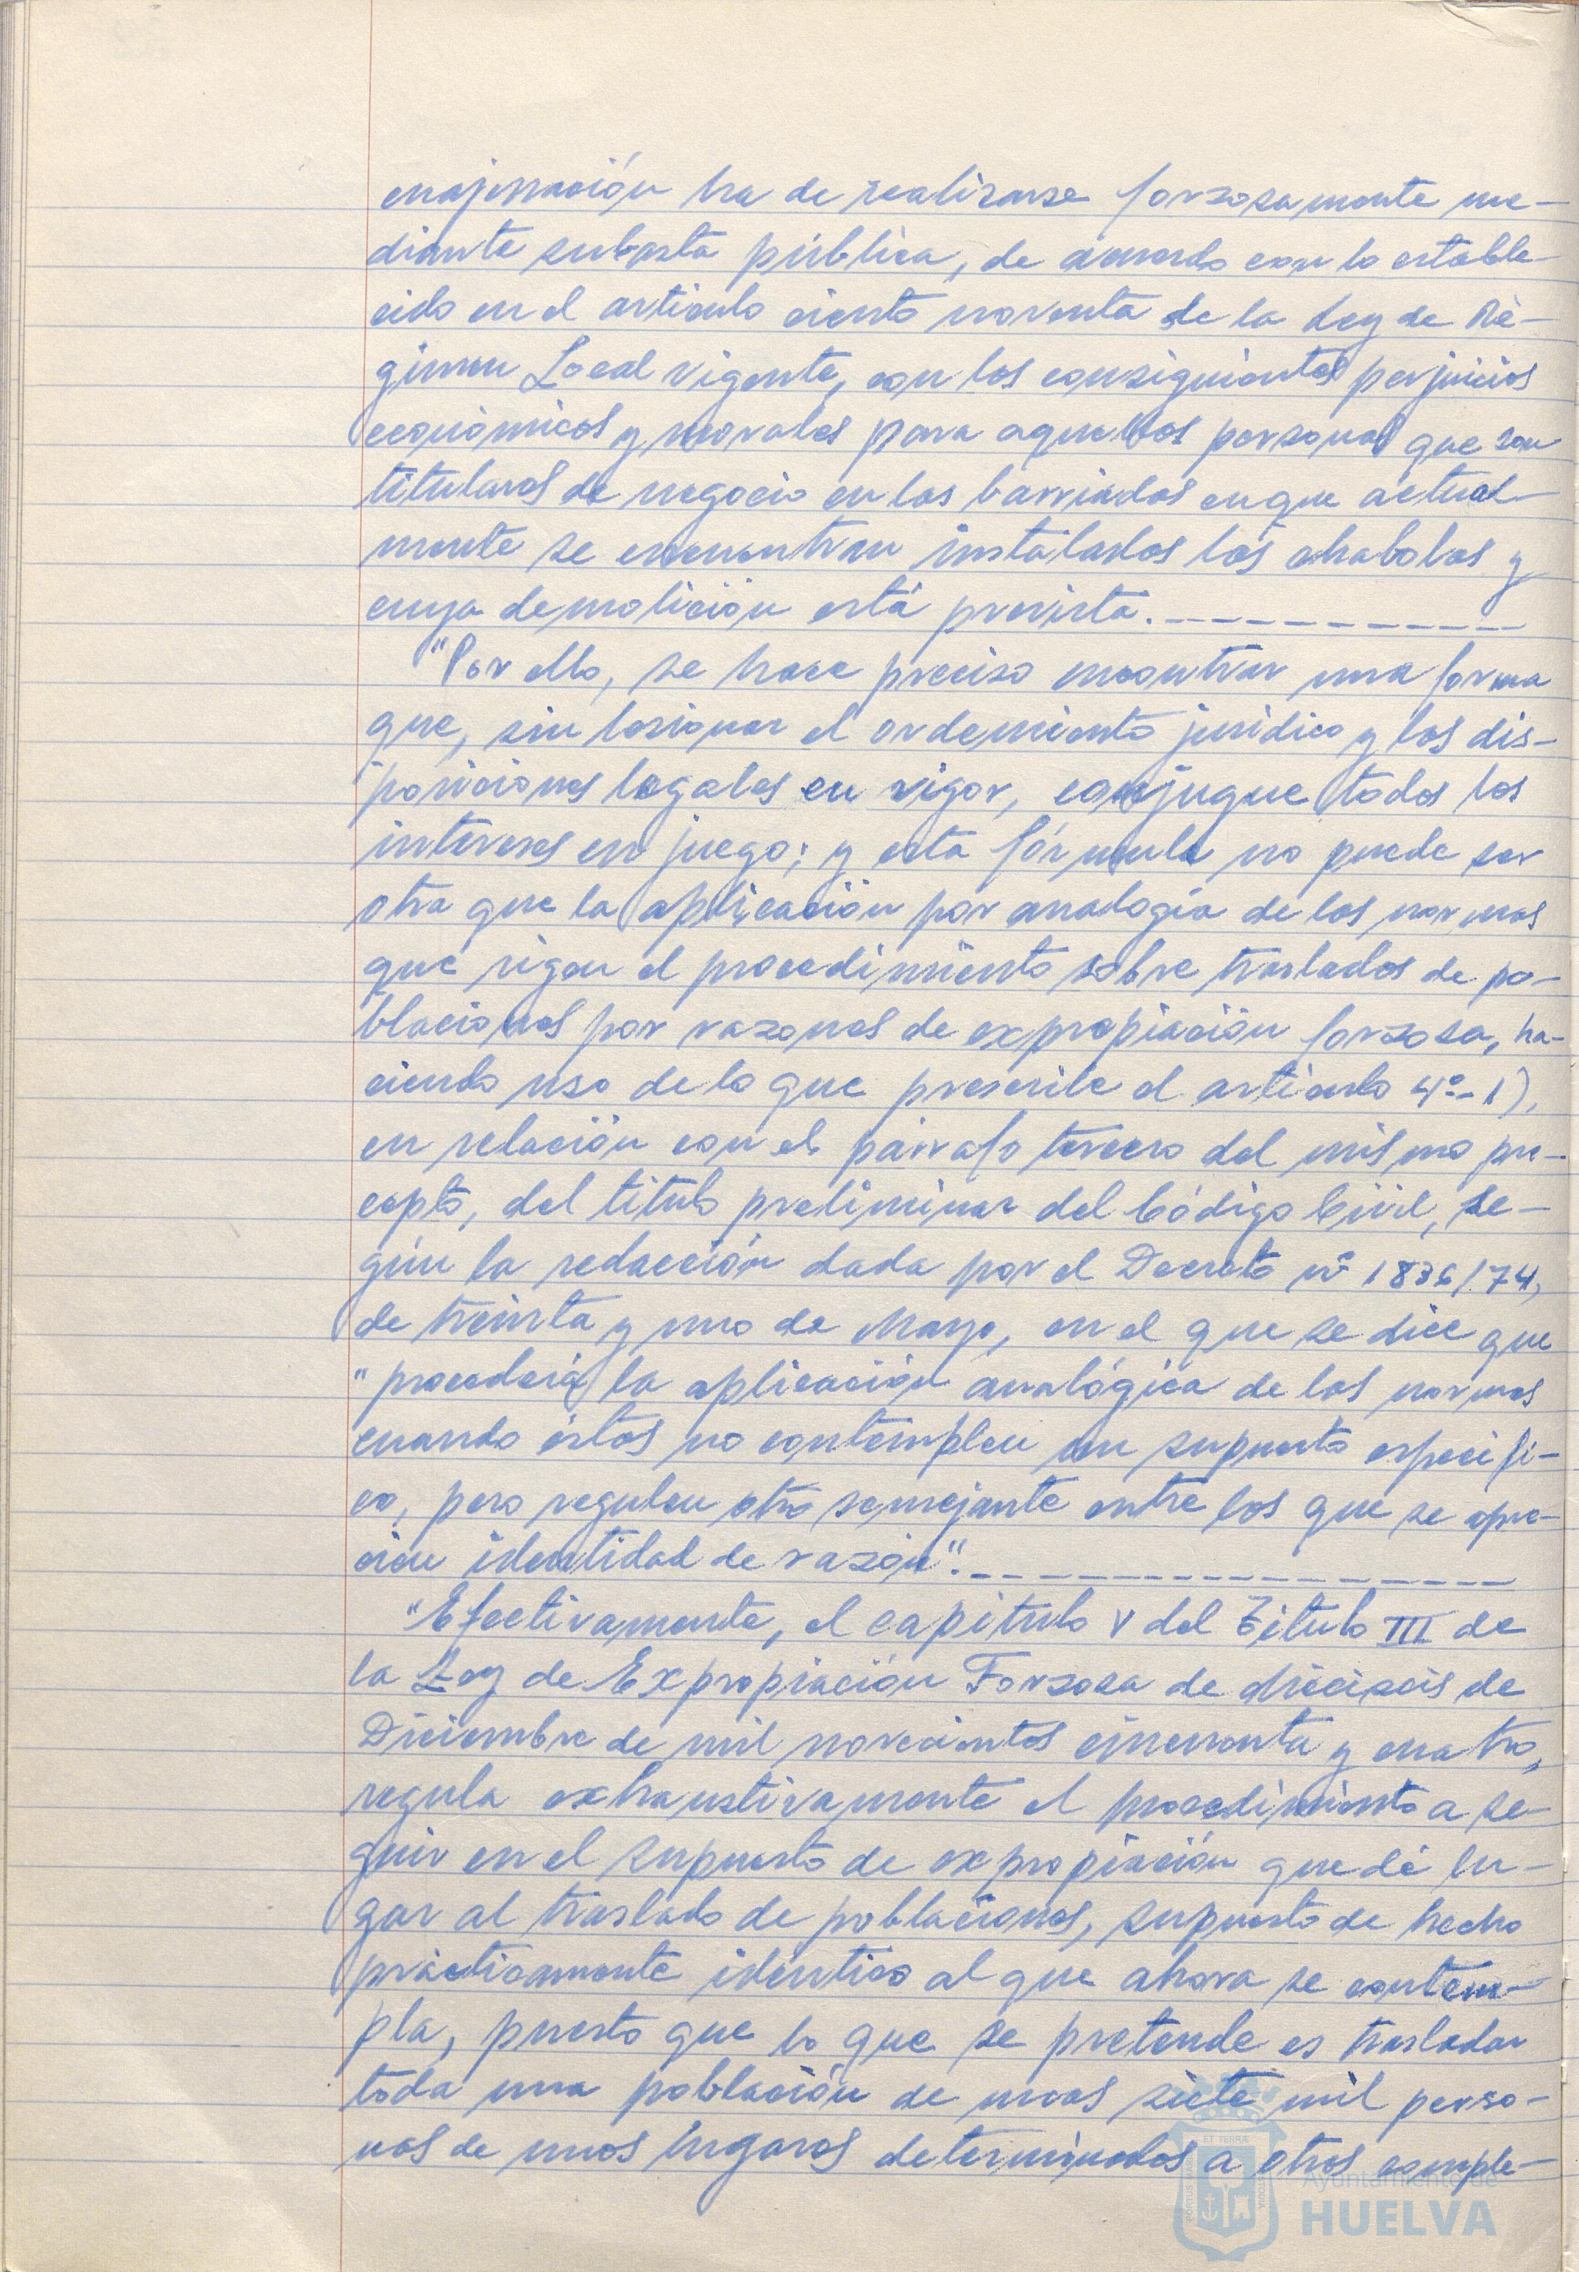 enajenación ha de realizarse forzosamente me-
diante subasta pública, de acuerdo con lo estable-
cido en el artículo ciento noventa de la Ley de Ré-
gimen Local vigente, con los consiguientes perjuicios
económicos y morales para aquellas personas que son
titulares de negocio en las barriadas en que actual-
mente se encuentran instaladas las chabolas y
cuya demolición está prevista.____________
"Por ello, se hace preciso encontrar una forma
que, sin lesionar el ordemiento jurídico y las dis-
posiciones legales en vigor, conjugue todos los
intereses en juego; y esta fórmula no puede ser
otra que la aplicación por analogía de las normas
que rigen el procedimiento sobre traslados de po-
blaciones por razones de expropiación forzosa, ha-
ciendo uso de lo que prescribe el artículo 4º-1),
en relación con el párrafo tercero del mismo pre-
cepto, del título preliminar del Código Civil, se-
gún la redacción dada por el Decreto nº 1836/74,
de treinta y uno de Mayo, en el que se dice que
"procederá la aplicación analógica de las normas
cuando éstas no contemplen un supuesto especifi-
co, pero regulen otro semejante entre los que se apre-
cien identidad de razón".________________
"Efectivamente, el capítulo V del Título III de
la Ley de Expropiación Forzosa de dieciseis de
Diciembre de mil novecientos cincuenta y cuatro,
regula exhaustivamente el procedimiento a se-
guir en el supuesto de expropiación que dé lu-
gar al traslado de poblaciones, supuesto de hecho
prácticamente idéntico al que ahora se contem-
pla, puesto que lo que se pretende es trasladar
toda una población de unas siete mil perso-
nas de unos lugares determinados a otros comple-
Ayuntamiento de
HUELVA